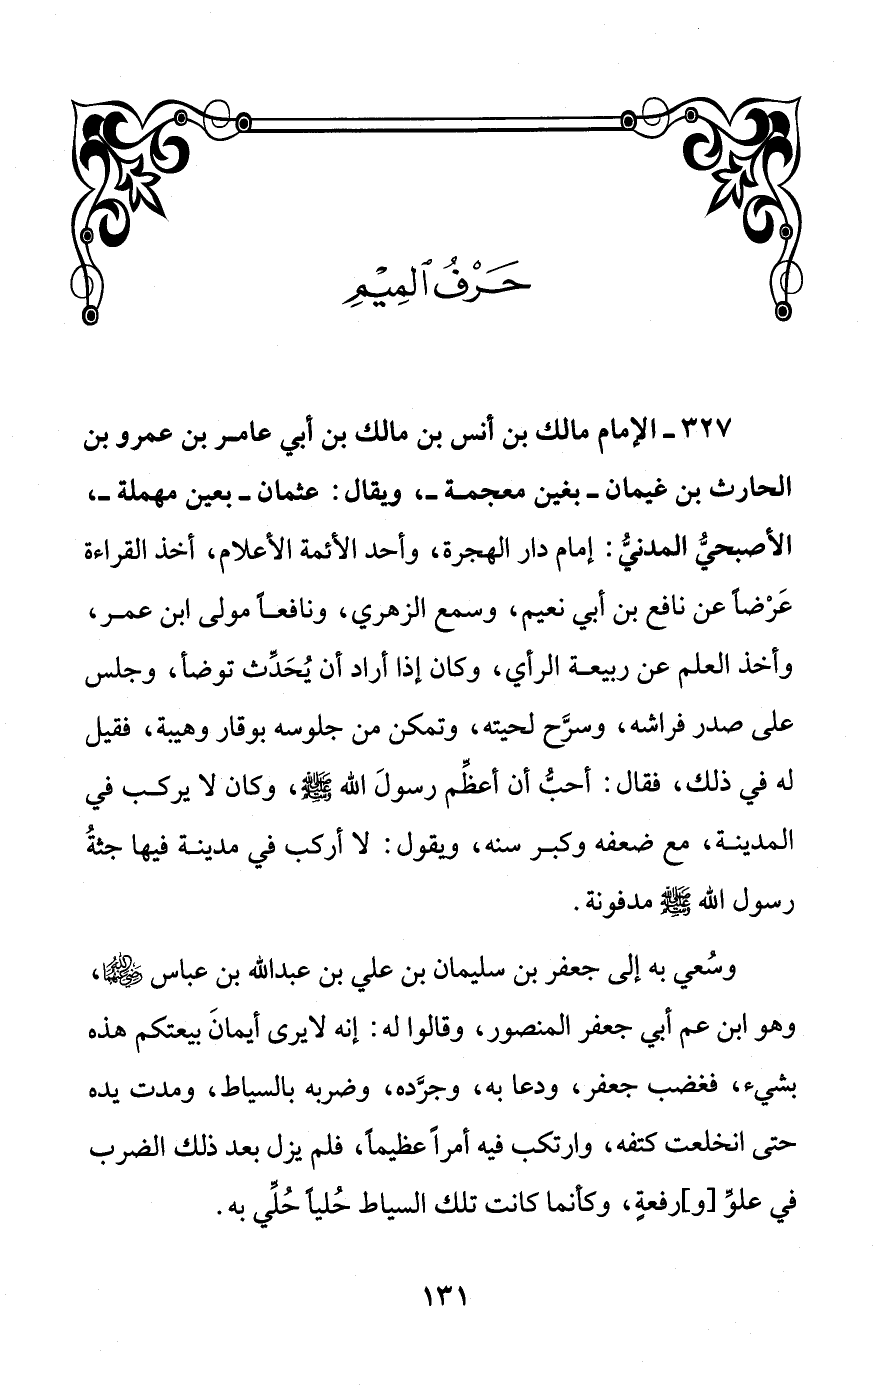 حَرْفُ ٱلمِيْمِ
٣٢٧ ـ الإمام مالك بن أنس بن مالك بن أبي عامر بن عمرو بن
الحارث بن غيمان ـ بغين معجمة ـ، ويقال: عثمان ـ بعين مهملة ـ،
الأصبحيُّ المدنيُّ: إمام دار الهجرة، وأحد الأئمة الأعلام، أخذ القراءة
عَرْضاً عن نافع بن أبي نعيم، وسمع الزهري، ونافعاً مولى ابن عمر،
وأخذ العلم عن ربيعة الرأي، وكان إذا أراد أن يُحَدِّث توضأ، وجلس
على صدر فراشه، وسرَّح لحيته، وتمكن من جلوسه بوقار وهيبة، فقيل
له في ذلك، فقال: أحبُّ أن أعظِّم رسولَ الله ﷺ، وكان لا يركب في
المدينة، مع ضعفه وكبر سنه، ويقول: لا أركب في مدينة فيها جثةُ
رسول الله ﷺ مدفونة.
وسُعي به إلى جعفر بن سليمان بن علي بن عبدالله بن عباس رضي الله عنهما،
وهو ابن عم أبي جعفر المنصور، وقالوا له: إنه لايرى أيمانَ بيعتكم هذه
بشيء، فغضب جعفر، ودعا به، وجرَّده، وضربه بالسياط، ومدت يده
حتى انخلعت كتفه، وارتكب فيه أمراً عظيماً، فلم يزل بعد ذلك الضرب
في علوٍّ [و]رفعةٍ، وكأنما كانت تلك السياط حُلياً حُلِّي به.
١٣١